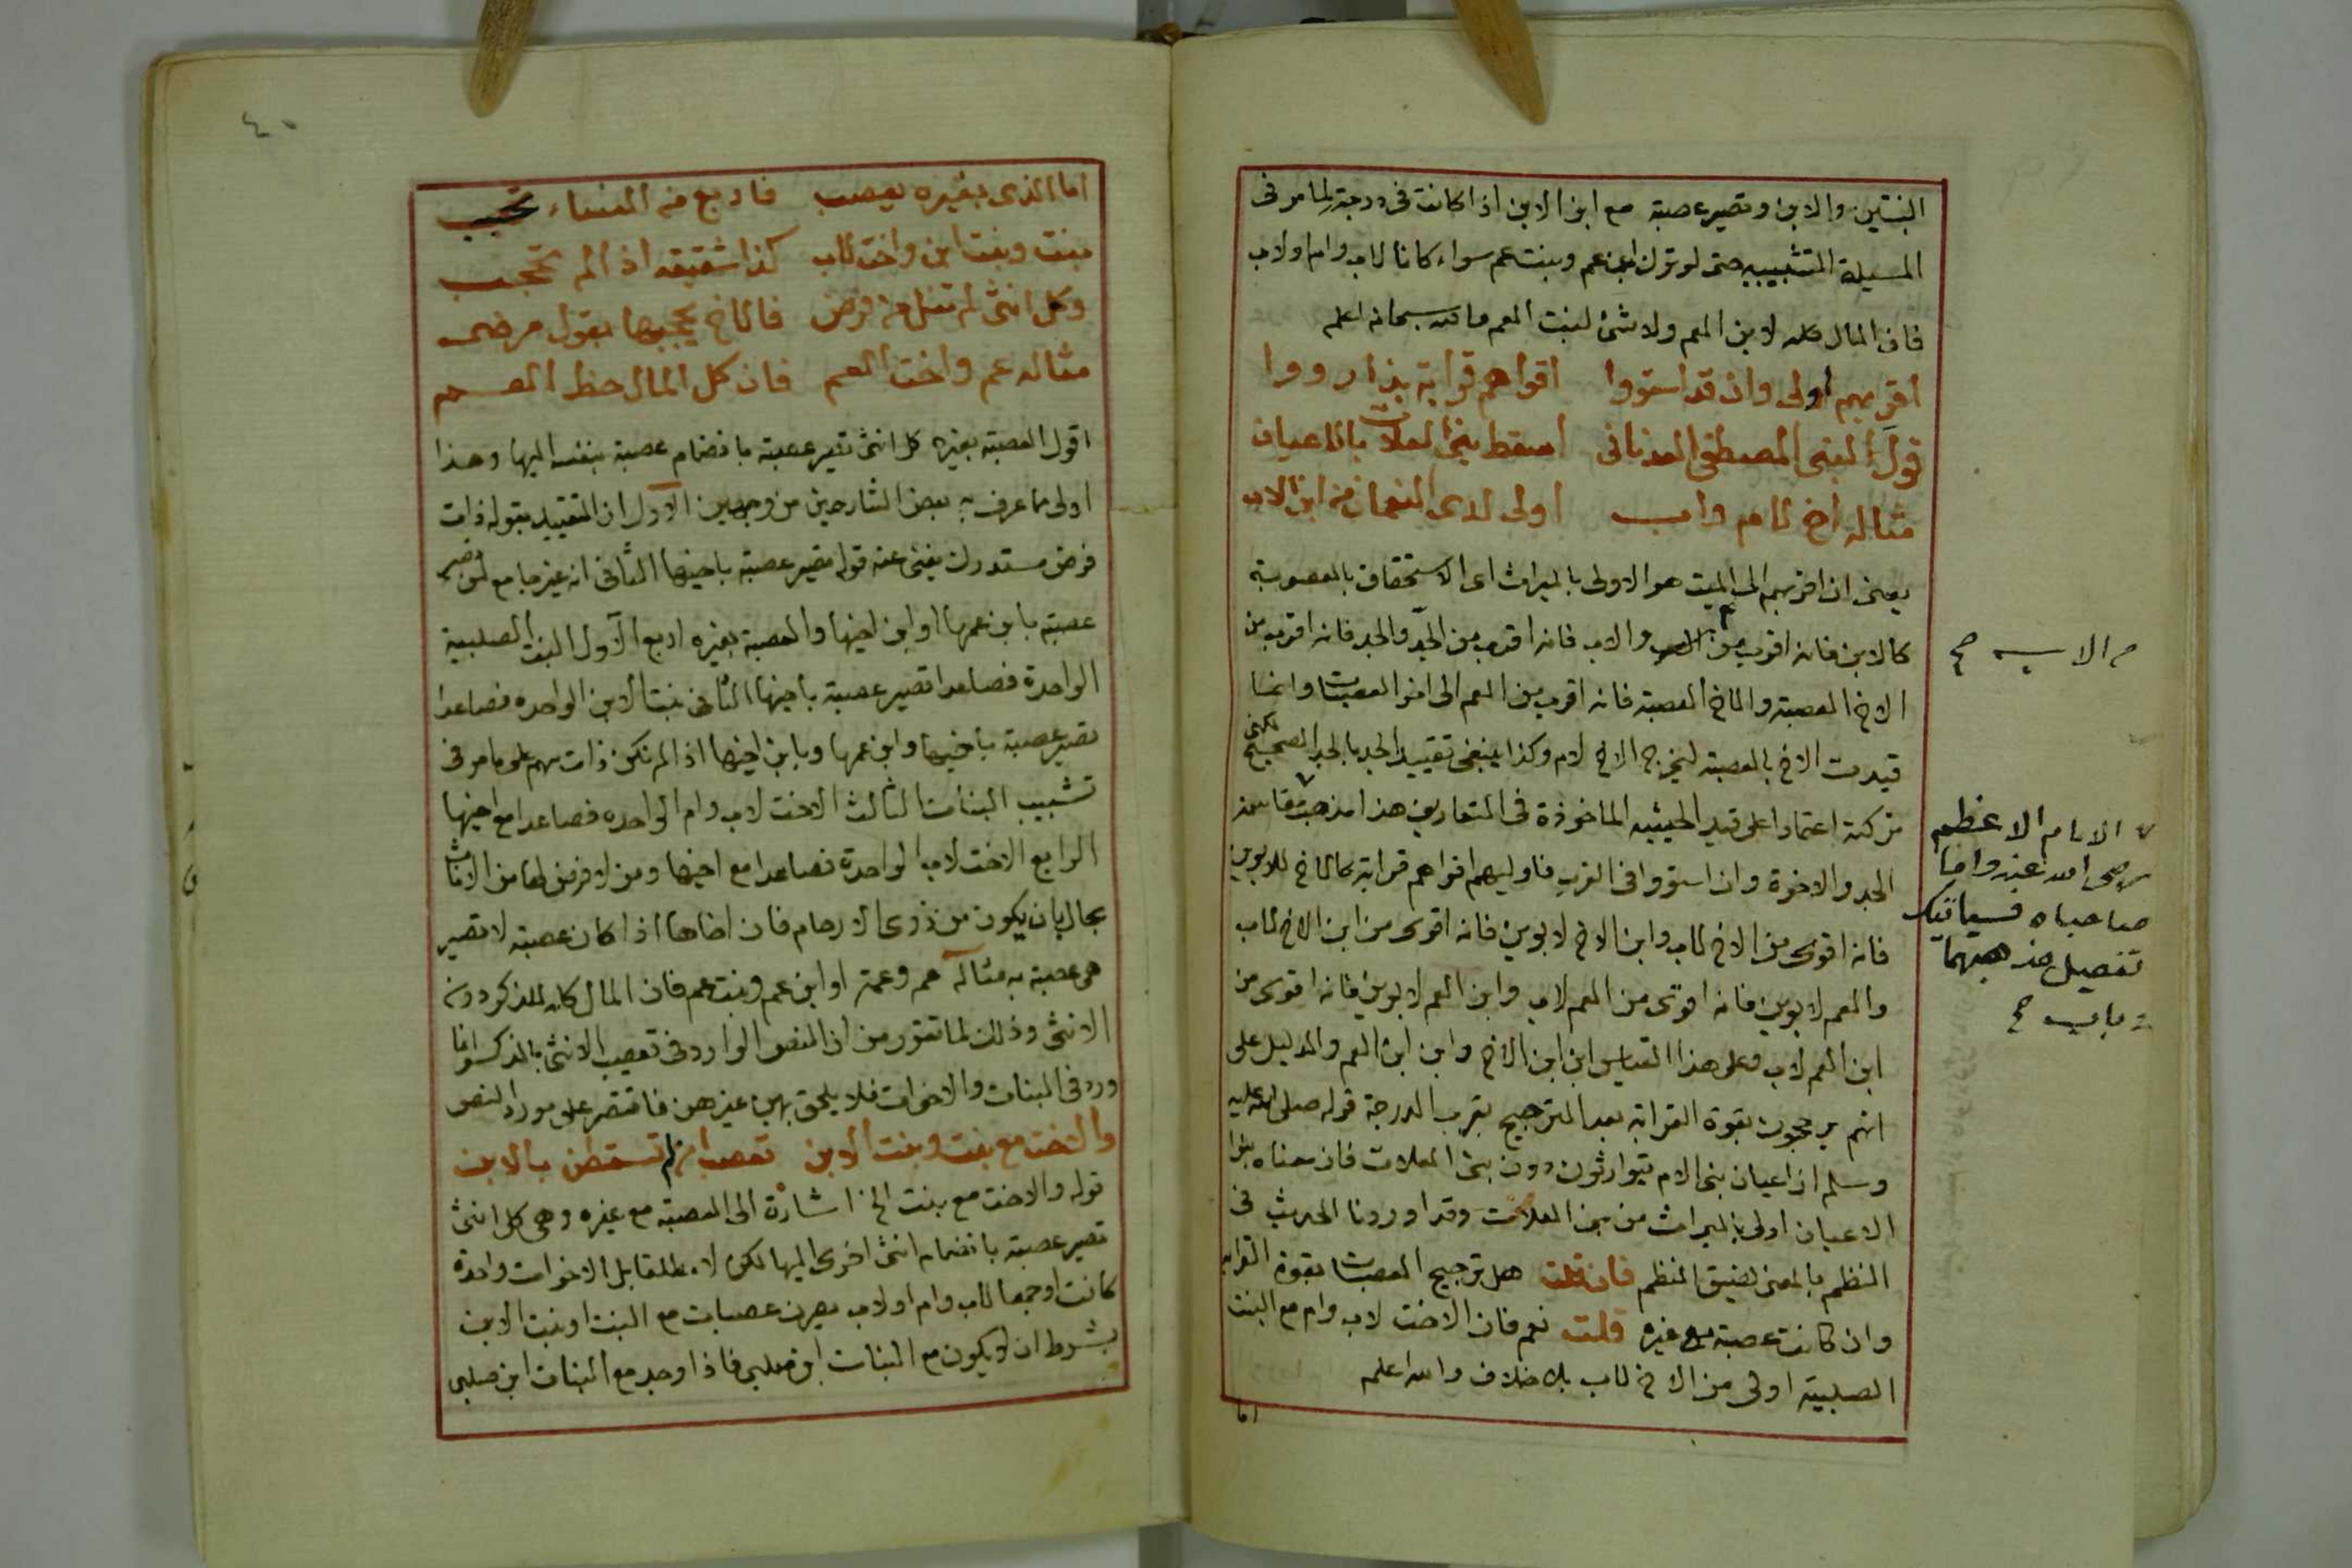 البنتين والابن وتصير عصبة مع ابن الابن اذا كانت في درجته لما مر في
المسيلة التشبيبيه حتى لو ترك ابن عم وبنت عم سواء كانا لاب وام او لاب
فان المال كله لابن العم ولا شئ لبنت العم سبحانه اعلم
اقربهم اولى وان قد استووا اقواهم قرابة بذا رووا
قول النبي المصطفى العدناني اسقط بني العلات بالاعيان
مثاله اخ لام واب اولى لدى النعمان من ابن الاب
يعني ان اقربهم الى الميت هو الاولى بالميراث اى الاستحقاق بالعصوبة
كالابن فانه اقرب من والاب فانه اقرب من الجد والجد فانه اقرب من
الاخ العصبة والاخ العصبة فانه اقرب من العم الى اخر العصبات وانما
قيدت الاخ بالعصبة ليخرج الاخ لام وكذا ينبغي تقييد الجد بالجد الصحيح لكني
تركته اعتمادا على قيد الحيثيه الماخوذة في التعاريف هذا مذهب
الجد والاخوة وان استووا في القرب فاوليهم اقواهم قرابة كالاخ للابوين
فانه اقوى من الاخ لاب وابن الاخ لابوين فانه اقوى من ابن الاخ لاب
والعم لابوين فانه اقوى من العم لاب وابن العم لابوين فانه اقوى من
ابن العم لاب وعلى هذا القياس ابن ابن الاخ وابن ابن العم والدليل على
انهم يرجحون بقوة القرابة بعد الترجيح بقرب الدرجة قوله صلى الله عليه
وسلم ان اعيان بني الام يتوارثون دون بني العلات فان معناه بنوا
الاعيان اولى بالميراث من بني العلات وقد اوردنا الحديث في
النظم بالمعنى لضيق النظم فان قلت هل ترجيح العصبات بقوة القرابه
وان كانت عصبة مع غيره قلت نعم فان الاخت لاب وام مع البنت
الصلبية اولى من الاخ لاب بلا خلاف والله اعلم
اما
الاب صح
الامام الاعظم
رضى الله عنه واما
صاحباه فسياتيك
تفصيل مذهبهما
صح
٤٠
اما الذى بغيره يعصب فاربع من النساء تحسب
بنت وبنت ابن واخت لاب كذا شقيقه اذا لم تحجب
وكل انثى لم تنل من فرض فالاخ يحجبها بقول مرضى
مثاله عم واخت العم فان كل المال حظ العم
اقول العصبة بغيره كل انثى تصير عصبة بانضمام عصبة بنفسه اليها وهذا
اولى مما عرف به بعض الشارحين من وجهين الاول ان التقييد بقوله ذات
فرض مستدرك يغنى عنه قوله تصير عصبة باخيها الثانى انه غير جامع لمن تصير
عصبة بابن عمها او ابن اخيها والعصبة بغيره اربع الاول البنت الصلبية
الواحدة فصاعدا تصير عصبة باخيها الثانى بنت الابن الواحده فصاعدا
تصير عصبة باخيها وابن عمها وبابن اخيها اذا لم تكن ذات سهم على ما مر فى
تشبيب البنات الثالث الاخت لاب وام الواحده فصاعدا مع اخيها
الرابع الاخت لاب الواحدة فصاعدا مع اخيها ومن لا فرض لها من الاناث
بحال بان يكون من ذوى الارحام فان اخاها اذا كان عصبة لا تصير
هى عصبة به مثاله عم وعمة او ابن عم وبنت عم فان المال كله للذكر دون
الانثى وذلك لما تقرر من ان النص الوارد فى تعصيب الانثى بالذكر انما
ورد فى البنات والاخوات فلا يلحق بهن غيرهن فاقتصر على مورد النص
والاخت مع بنت وبنت الابن تسقطن بالابن
قوله والاخت مع بنت الخ اشارة الى العصبة مع غيره وهى كل انثى
تصير عصبة بانضمام انثى اخرى اليها لكن لا مطلقا بل الاخوات واحدة
كانت او جمعا لاب وام او لاب يصرن عصبات مع البنت او بنت الابن
بشرط ان لا يكون مع البنات ابن صلبى فاذا وجد مع البنات ابن صلبى